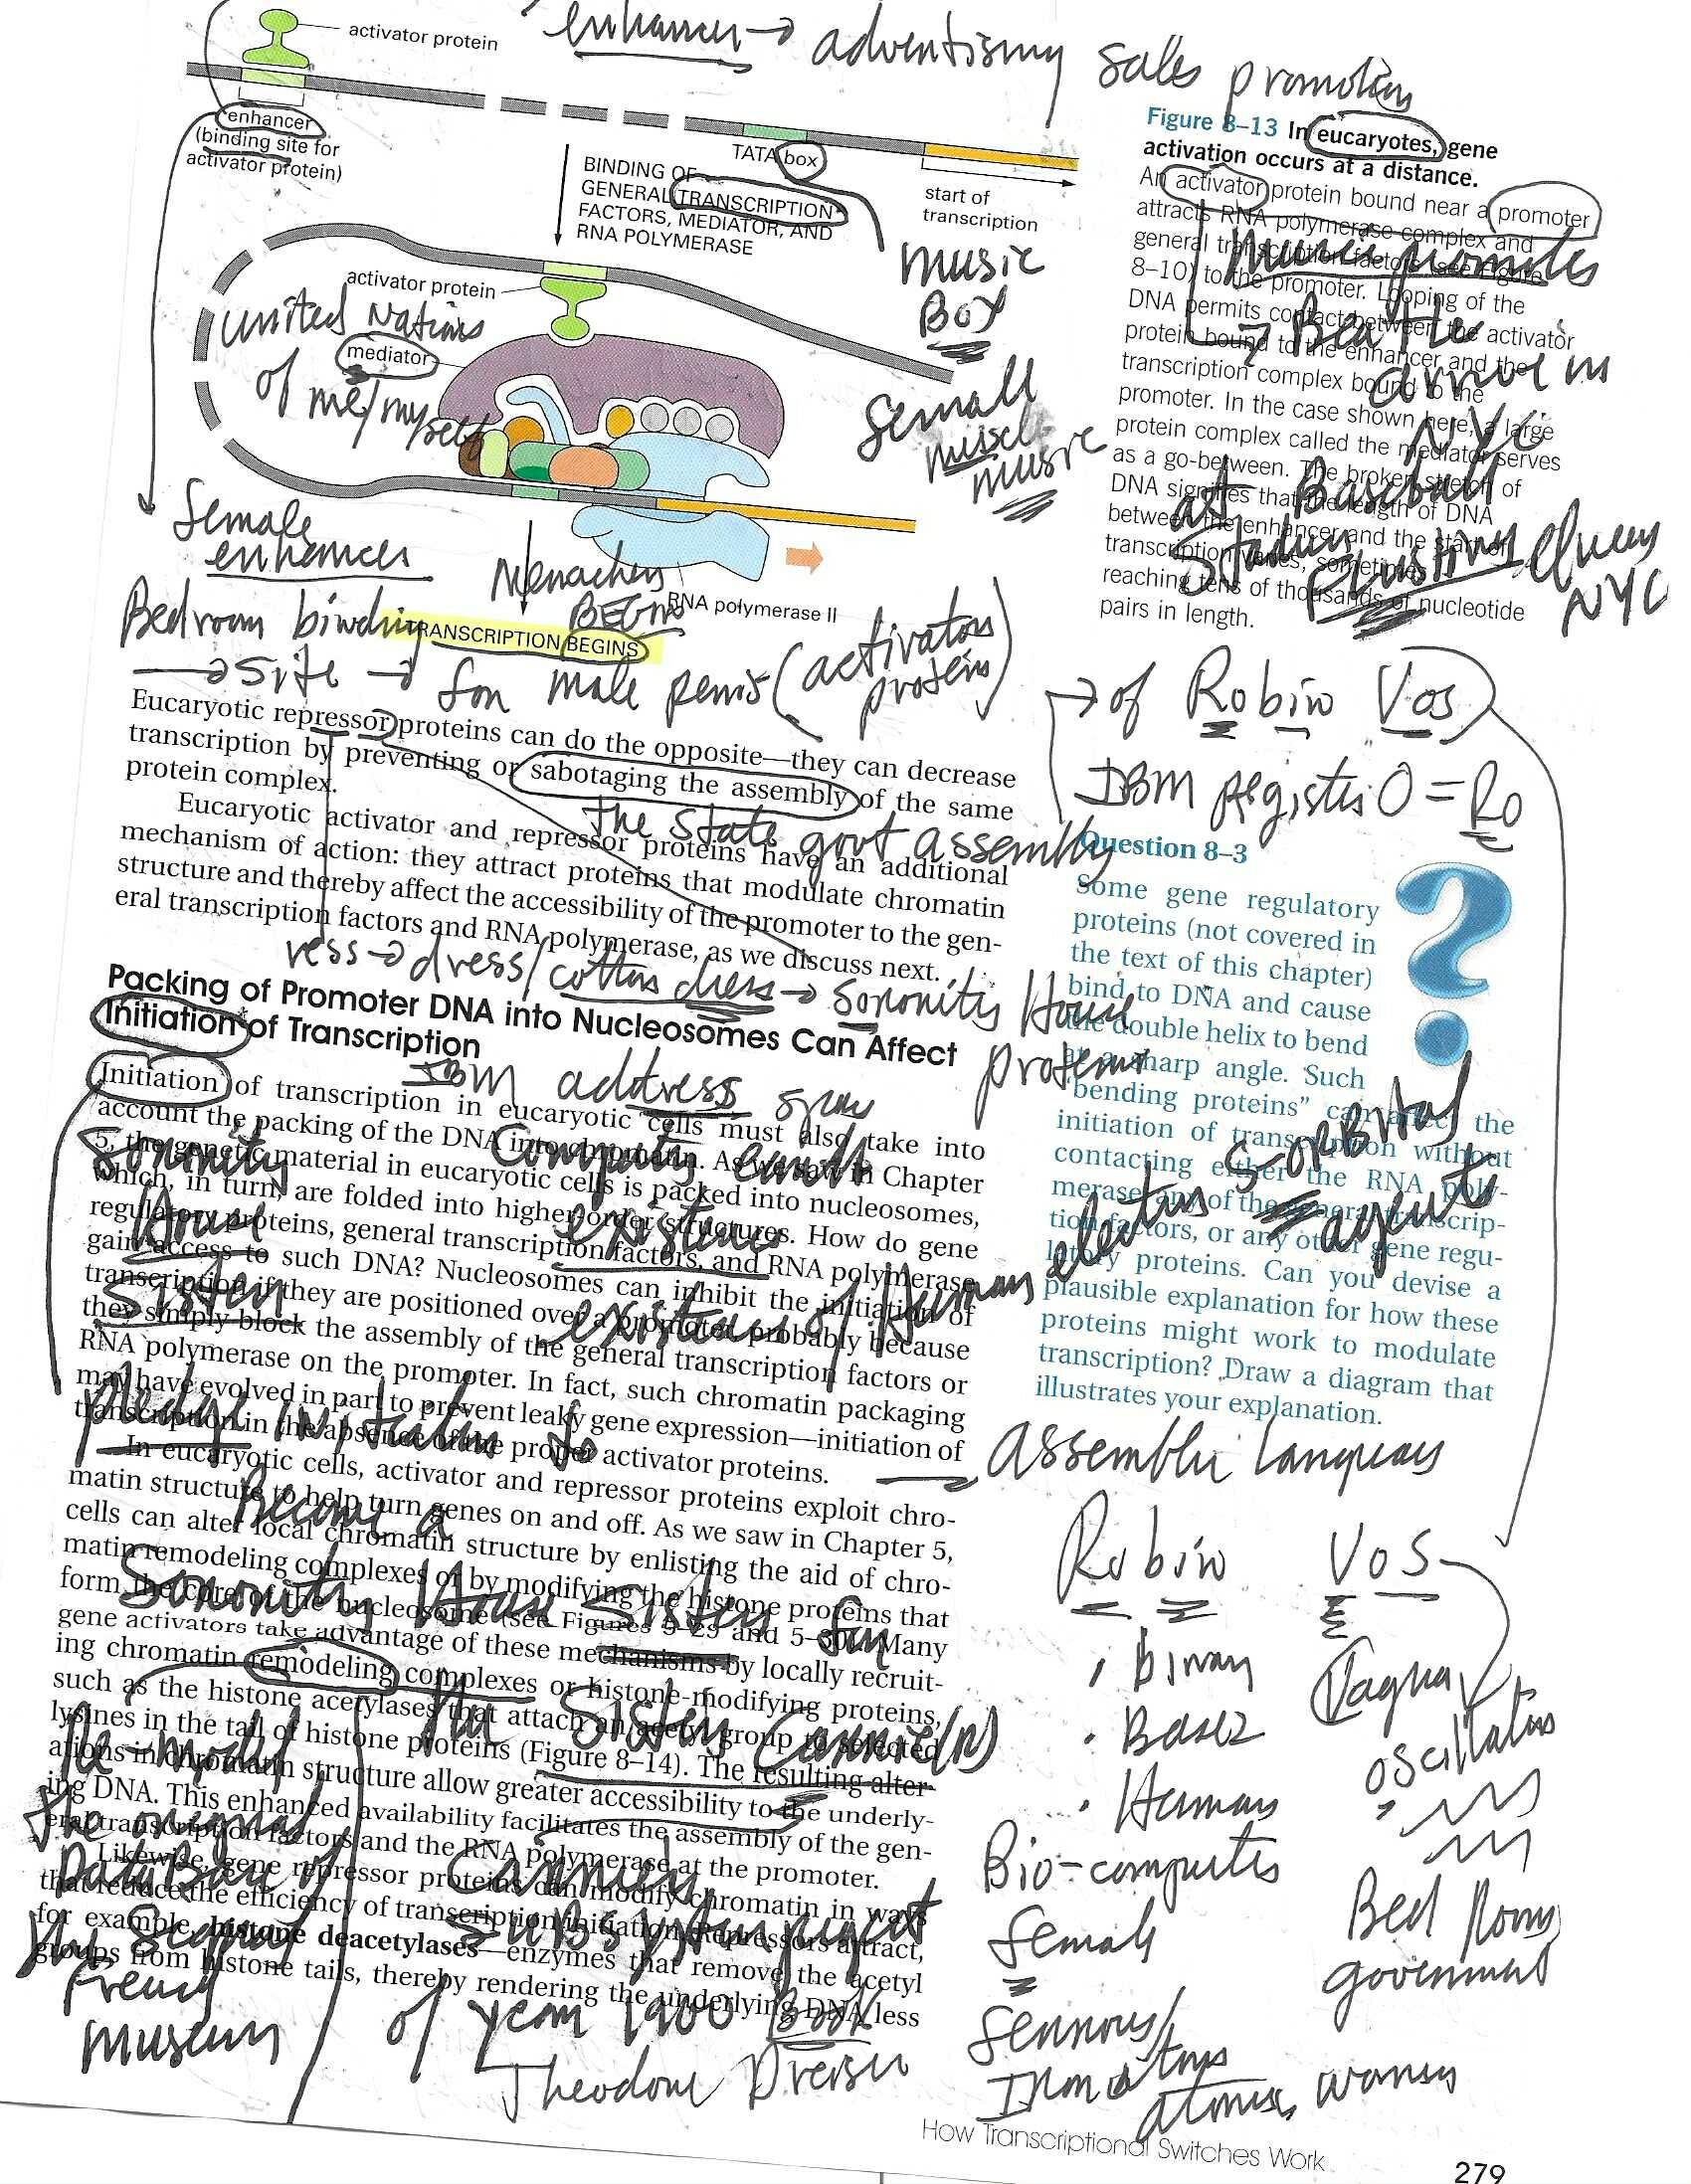 enhancer → advertising sales promotion
activator protein
enhancer
(binding site for
activator protein)
TATA box
start of
transcription
BINDING OF
GENERAL TRANSCRIPTION
FACTORS, MEDIATOR, AND
RNA POLYMERASE
music
Box
activator protein
united Nations
mediator
of me/myself
music
female
enhancer
Bedroom binding
→ site → for male penis (activator
protein)
BEGIN
RNA polymerase II
TRANSCRIPTION BEGINS
Figure 8–13 In eucaryotes, gene
activation occurs at a distance.
An activator protein bound near a promoter
attracts RNA polymerase complex and
general transcription factors (see Figure
8–10) to the promoter. Looping of the
DNA permits contact between the activator
protein bound to the enhancer and the
transcription complex bound to the
promoter. In the case shown here, a large
protein complex called the mediator serves
as a go-between. The broken stretch of
DNA signifies that the length of DNA
between the enhancer and the start of
transcription varies, sometimes
reaching tens of thousands of nucleotide
pairs in length.
music promoter
→ Beatle
arrive in
NYC
at Baseball
Stadium
NYC
Eucaryotic repressor proteins can do the opposite—they can decrease
transcription by preventing or sabotaging the assembly of the same
protein complex.
the State govt assembly
→ of Robin Vos
IBM register 0 = R0
Eucaryotic activator and repressor proteins have an additional
mechanism of action: they attract proteins that modulate chromatin
structure and thereby affect the accessibility of the promoter to the gen-
eral transcription factors and RNA polymerase, as we discuss next.
ress → dress/cotton dress → Sororities House
proteins
Packing of Promoter DNA into Nucleosomes Can Affect
Initiation of Transcription
IBM address space
Initiation of transcription in eucaryotic cells must also take into
account the packing of the DNA into chromatin. As we saw in Chapter
5, the genetic material in eucaryotic cells is packed into nucleosomes,
which, in turn, are folded into higher-order structures. How do gene
regulatory proteins, general transcription factors, and RNA polymerase
gain access to such DNA? Nucleosomes can inhibit the initiation of
transcription if they are positioned over a promoter, probably because
they simply block the assembly of the general transcription factors or
RNA polymerase on the promoter. In fact, such chromatin packaging
may have evolved in part to prevent leaky gene expression—initiation of
transcription in the absence of the proper activator proteins.
Sorority
House
Sister
pledge
Become a
Sorority House Sister for
the Sister Carrie(R)
Computer earth
existence
existence of Human
Question 8–3
Some gene regulatory
proteins (not covered in
the text of this chapter)
bind to DNA and cause
the double helix to bend
at a sharp angle. Such
“bending proteins” can affect the
initiation of transcription without
contacting either the RNA poly-
merase, any of the general transcrip-
tion factors, or any other gene regu-
latory proteins. Can you devise a
plausible explanation for how these
proteins might work to modulate
transcription? Draw a diagram that
illustrates your explanation.
agent
In eucaryotic cells, activator and repressor proteins exploit chro-
matin structure to help turn genes on and off. As we saw in Chapter 5,
cells can alter local chromatin structure by enlisting the aid of chro-
matin remodeling complexes or by modifying the histone proteins that
form the core of the nucleosome (see Figures 5–29 and 5–30). Many
gene activators take advantage of these mechanisms by locally recruit-
ing chromatin remodeling complexes or histone-modifying proteins,
such as the histone acetylases that attach an acetyl group to selected
lysines in the tail of histone proteins (Figure 8–14). The resulting alter-
ations in chromatin structure allow greater accessibility to the underly-
ing DNA. This enhanced availability facilitates the assembly of the gen-
eral transcription factors and the RNA polymerase at the promoter.
Likewise, gene repressor proteins can modify chromatin in ways
that reduce the efficiency of transcription initiation. Repressors attract,
for example, histone deacetylases—enzymes that remove the acetyl
groups from histone tails, thereby rendering the underlying DNA less
Re-model
the original
DataBase of
French
museum
Carrie
of year 1900 Book
Theodore Dreiser
Robin Vos
• binary
• Base 2
• Human
Bio-computer
female
Bed Room
government
women
How Transcriptional Switches Work
279